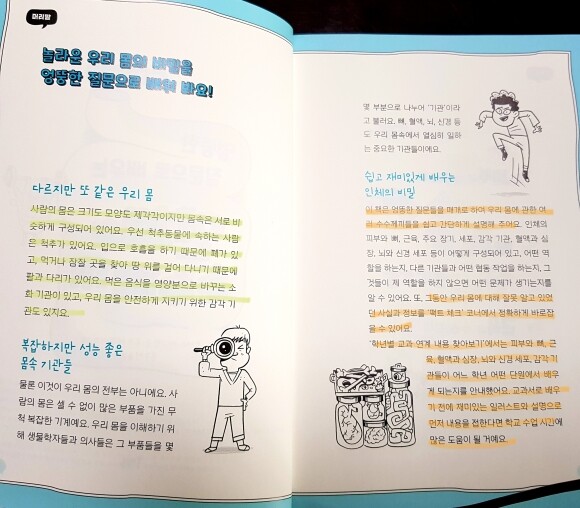 머리말
놀라운 우리 몸의 비밀을
엉뚱한 질문으로 배워 봐요!
다르지만 또 같은 우리 몸
사람의 몸은 크기도 모양도 제각각이지만 몸속은 서로 비
슷하게 구성되어 있어요. 우선 척추동물에 속하는 사람
은 척추가 있어요. 입으로 호흡을 하기 때문에 폐가 있
고, 먹거나 잠잘 곳을 찾아 땅 위를 걸어 다니기 때문에
팔과 다리가 있어요. 먹은 음식을 영양분으로 바꾸는 소
화 기관이 있고, 우리 몸을 안전하게 지키기 위한 감각 기
관도 있지요.
복잡하지만 성능 좋은
몸속 기관들
물론 이것이 우리 몸의 전부는 아니에요. 사
람의 몸은 셀 수 없이 많은 부품을 가진 무
척 복잡한 기계예요. 우리 몸을 이해하기 위
해 생물학자들과 의사들은 그 부품들을 몇
몇 부분으로 나누어 '기관'이라
고 불러요. 뼈, 혈액, 뇌, 신경 등
도 우리 몸속에서 열심히 일하
는 중요한 기관들이에요.
쉽고 재미있게 배우는
인체의 비밀
이 책은 엉뚱한 질문들을 매개로 하여 우리 몸에 관한 여
러 수수께끼들을 쉽고 간단하게 설명해 주어요. 인체의
피부와 뼈, 근육, 주요 장기, 세포, 감각 기관, 혈액과 심
장, 뇌와 신경 세포 등이 어떻게 구성되어 있고, 어떤 역
할을 하는지, 다른 기관들과 어떤 협동 작업을 하는지, 그
것들이 제 역할을 하지 않으면 어떤 문제가 생기는지를
알 수 있어요. 또, 그동안 우리 몸에 대해 잘못 알고 있었
던 사실과 정보를 '팩트 체크' 코너에서 정확하게 바로잡
을 수 있어요.
'학년별 교과 연계 내용 찾아보기'에서는 피부와 뼈, 근
육, 혈액과 심장, 뇌와 신경 세포, 감각 기
관들이 어느 학년 어떤 단원에서 배우
게 되는지를 안내했어요. 교과서로 배우
기 전에 재미있는 일러스트와 설명으로
먼저 내용을 접한다면 학교 수업 시간에
많은 도움이 될 거예요.